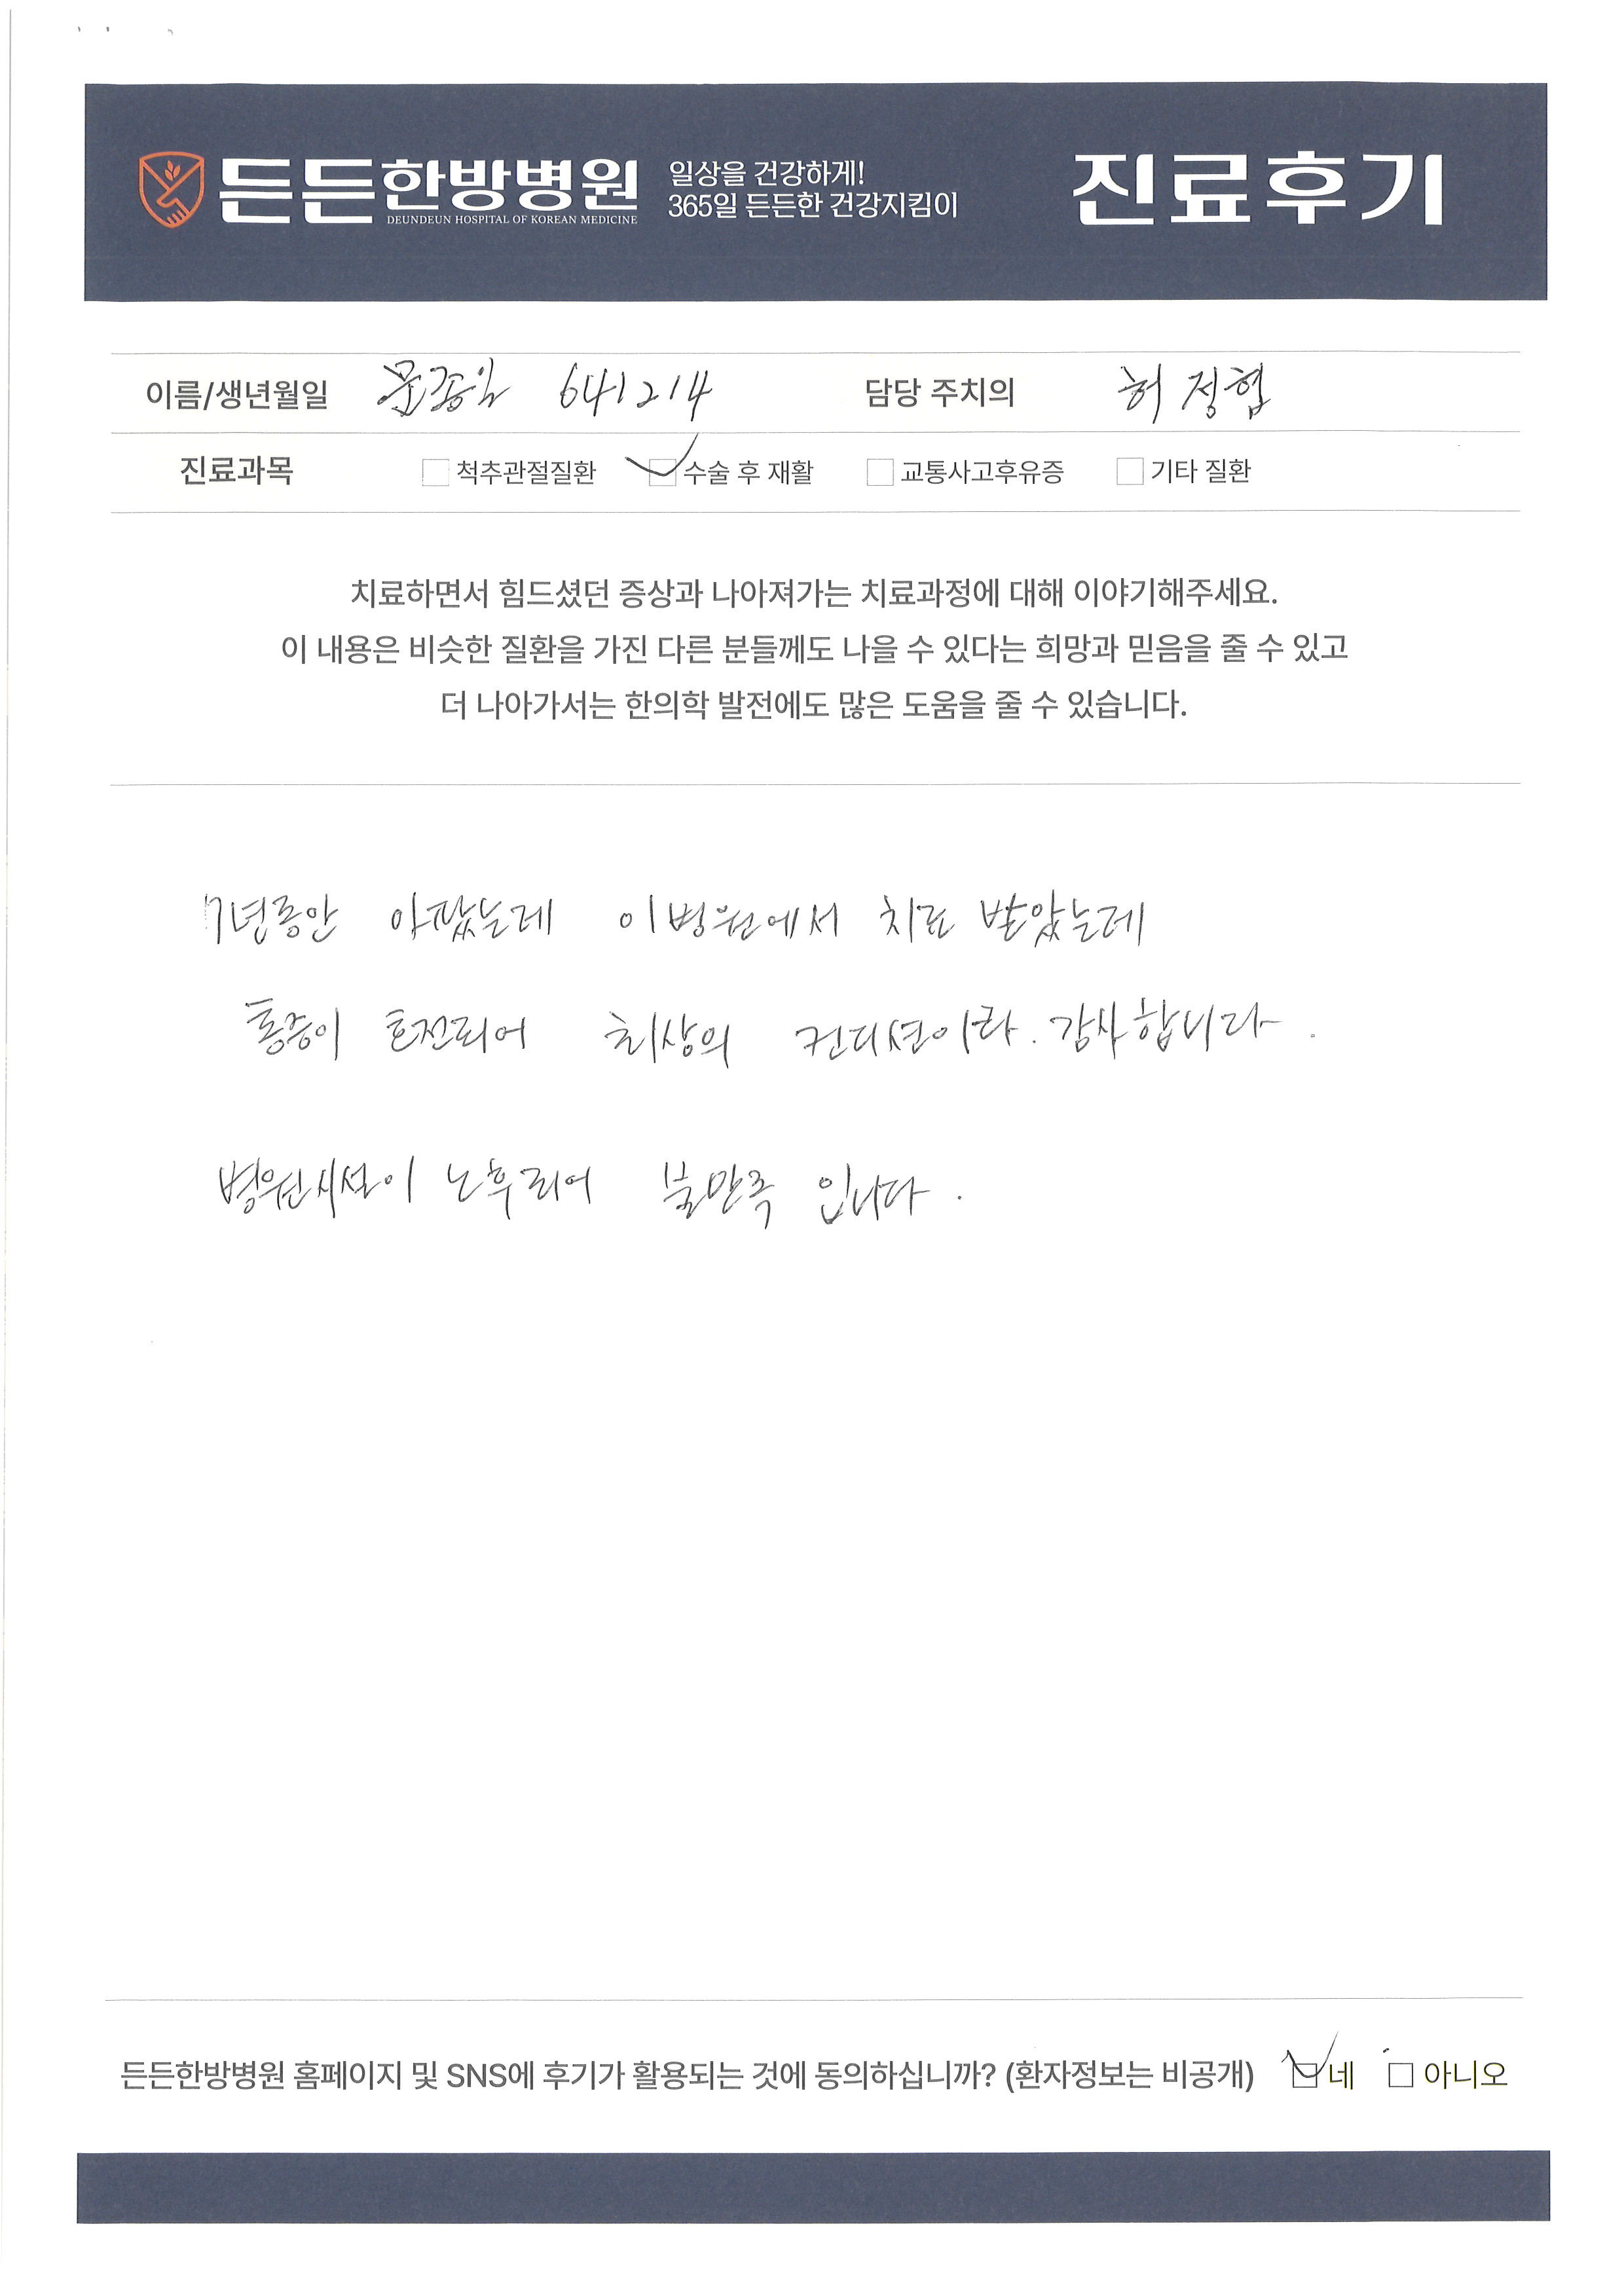 든든한방병원
DEUNDEUN HOSPITAL OF KOREAN MEDICINE
일상을 건강하게!
365일 든든한 건강지킴이
진료후기
이름/생년월일 문종일 641214 담당 주치의 허정협
진료과목 척추관절질환 수술 후 재활 교통사고후유증 기타 질환
치료하면서 힘드셨던 증상과 나아져가는 치료과정에 대해 이야기해주세요.
이 내용은 비슷한 질환을 가진 다른 분들께도 나을 수 있다는 희망과 믿음을 줄 수 있고
더 나아가서는 한의학 발전에도 많은 도움을 줄 수 있습니다.
7년동안 아팠는데 이병원에서 치료 받았는데
통증이 호전되어 최상의 컨디션이라. 감사합니다.
병원시설이 노후되어 불만족 입니다.
든든한방병원 홈페이지 및 SNS에 후기가 활용되는 것에 동의하십니까? (환자정보는 비공개) 네 아니오